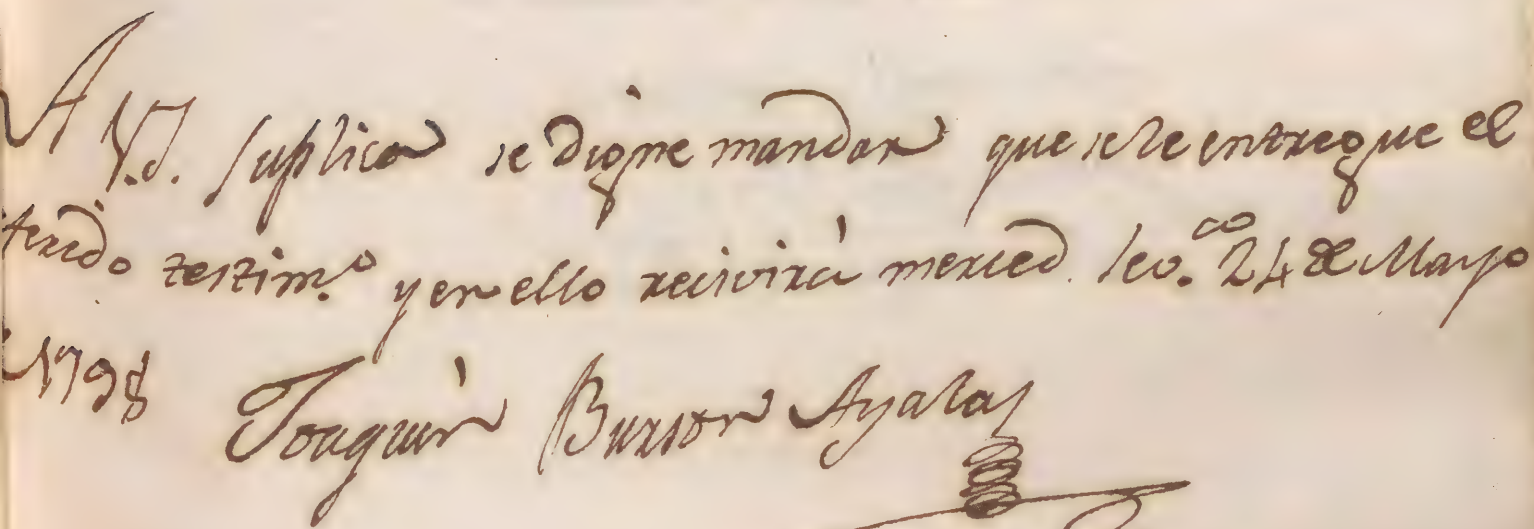 A V.S. suplica se digne mandar que se le entregue el
feredo testim.º y en ello recivirá merced. 24 de Mayo
1798 Joaquin Ayala